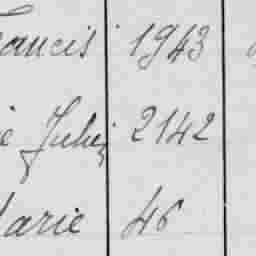 rancis 1943
e Julie 2142
arie 46